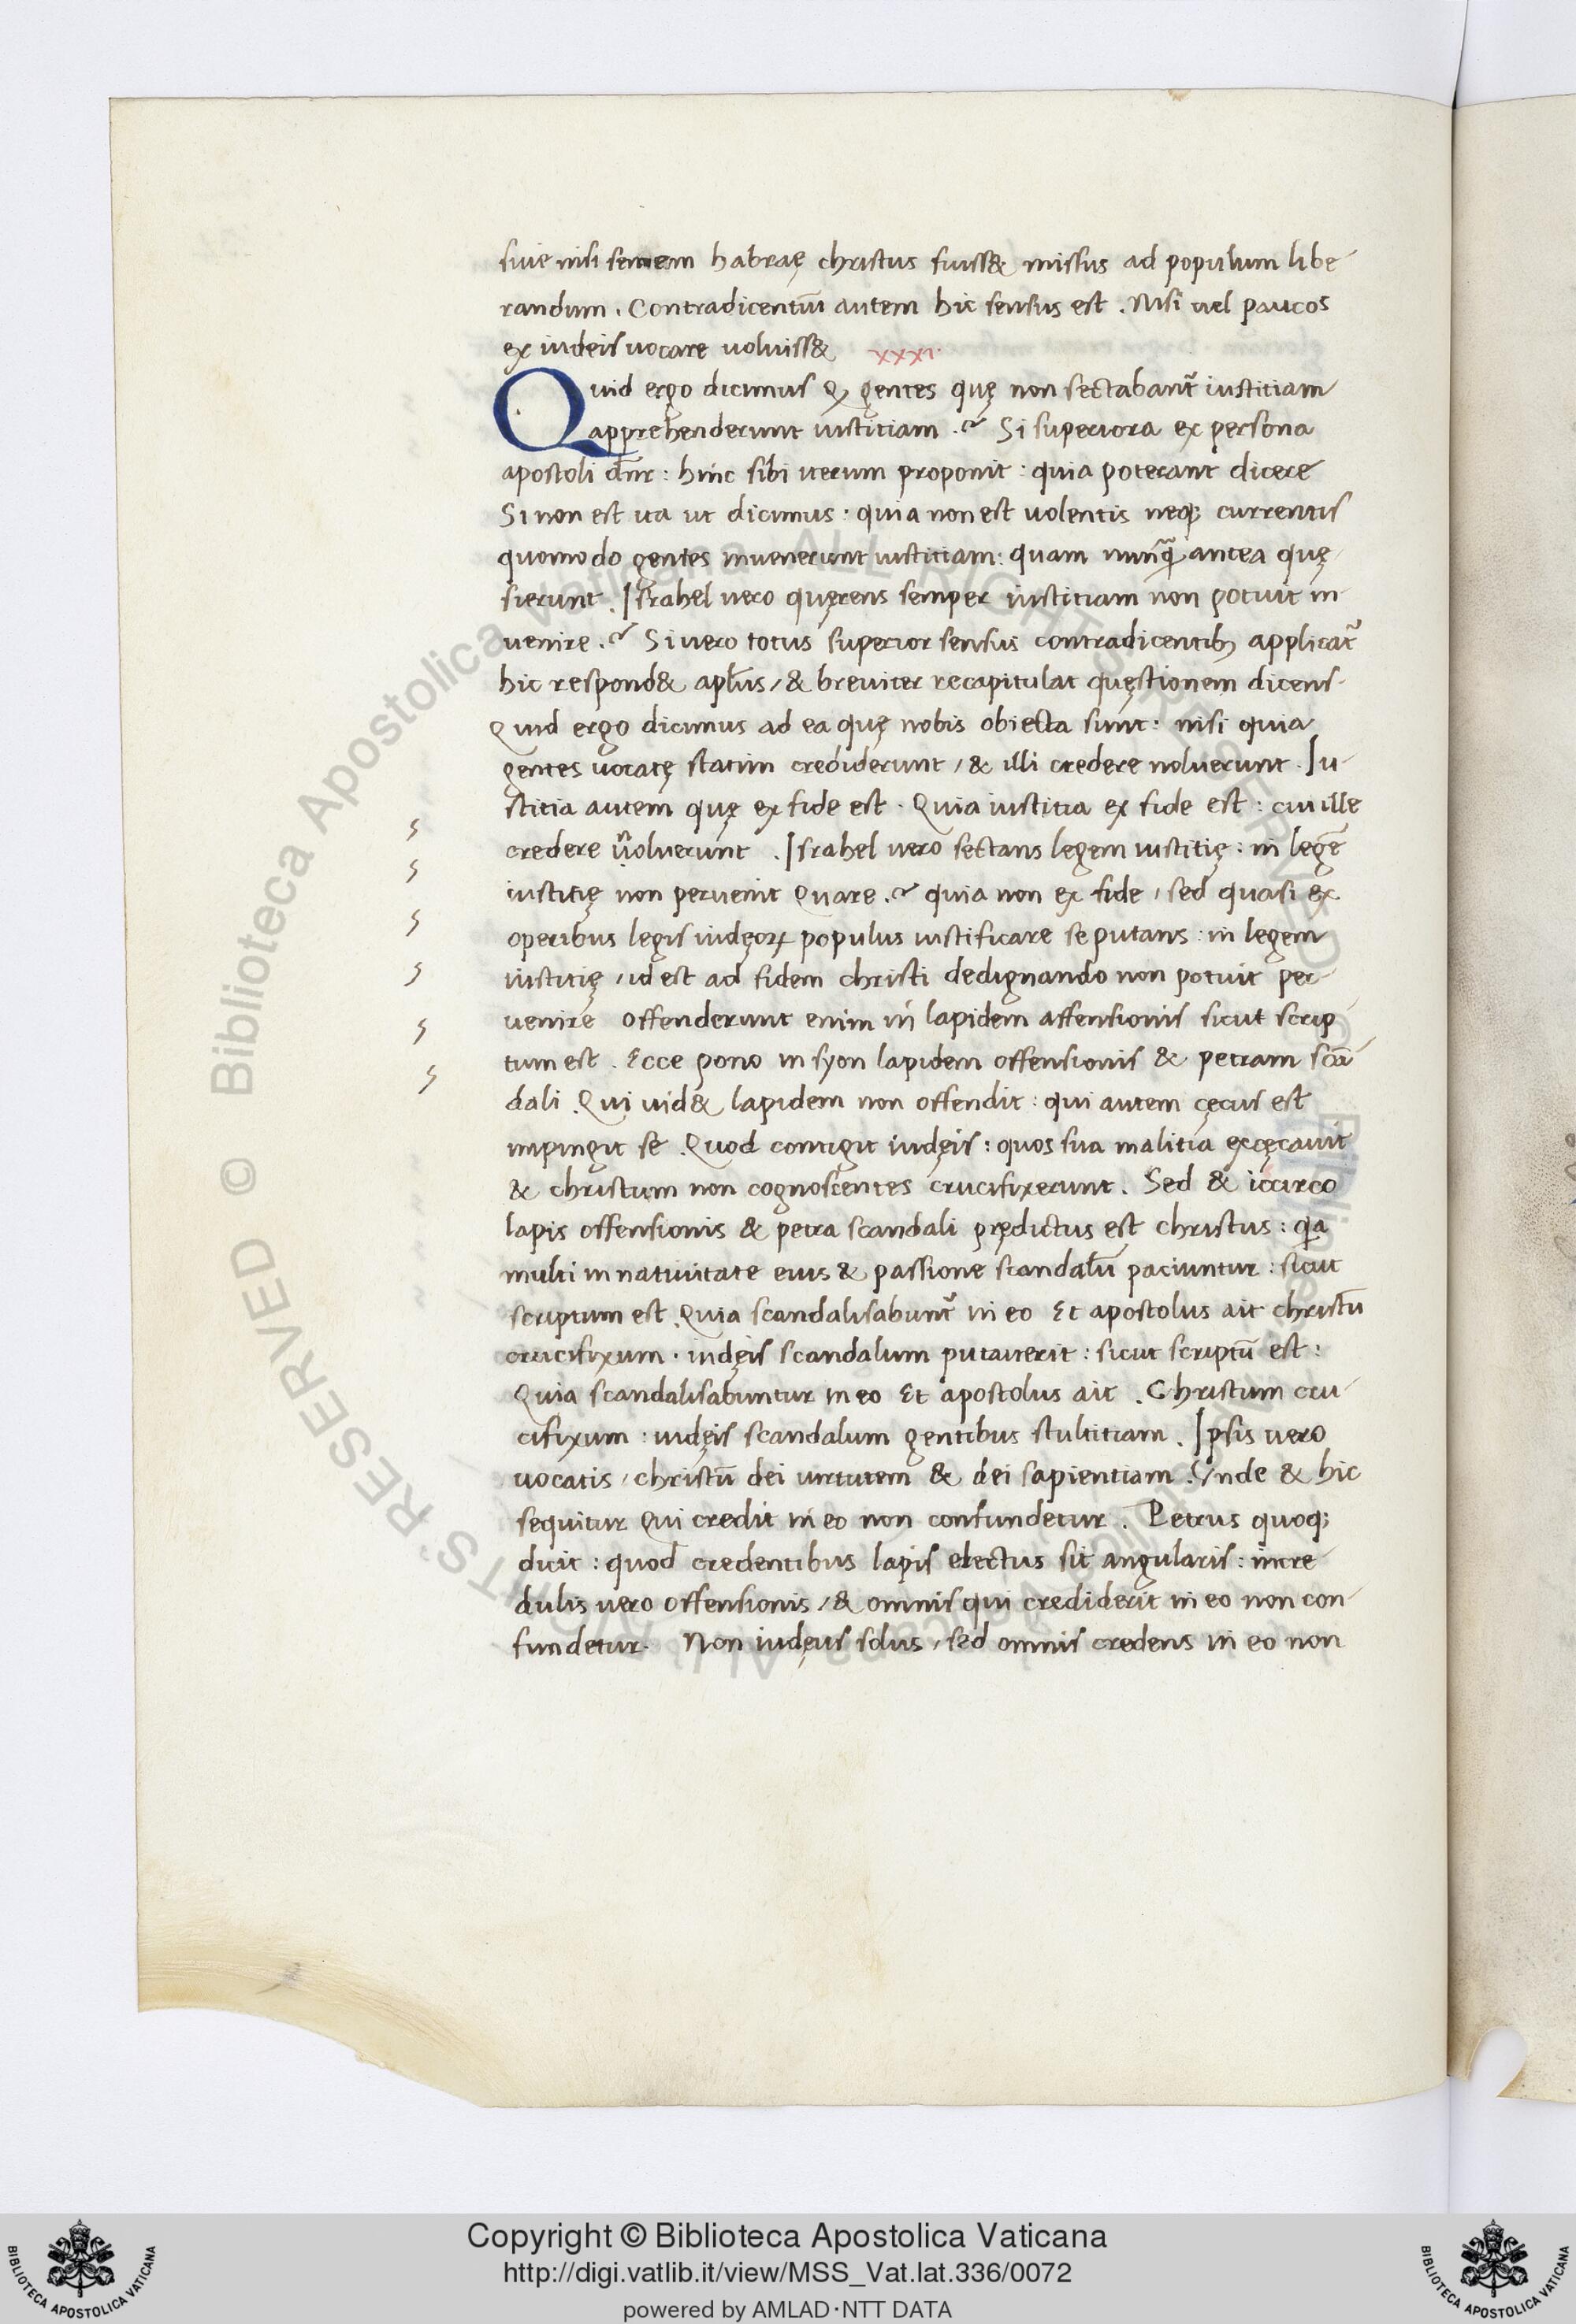 siue nisi semem habraę christus fuiss& missus ad populum libe
randum. Contradicentiū autem hic sensus est. Nisi uel paucos
ex iudeis uocare uoluiss& xxxi.
Quid ergo dicimus ꝙ gentes quę non sectabant᷑ iustitiam
apprehenderunt iustitiam. Si superiora ex persona
apostoli dn̄r: hinc sibi iterum proponit: quia poterant dicere
Si non est ita ut dicimus. quia non est uolentis neq; currentis
quomodo gentes inuenerunt iusticiam: quam nunꝗ̄ antea quę
sierunt. Israhel uero quęrens semper iustitiam non potuit in
uenire. Si uero totus superior sensus contradicentibꝫ applicat᷑
hic respond& apl̄us, & breuiter recapitulat quęstionem dicens.
Quid ergo dicimus ad ea quę nobis obiecta sunt: nisi quia
gentes uocatę statim crediderunt, & illi credere noluerunt. Iu
stitia autem quę ex fide est. Quia iustitia ex fide est: cui ille
credere uoluerunt. Israhel uero sectans legem iustitię: in legē
iustitię non peruenit Quare. quia non ex fide, sed quasi ex
operibus legis iudęoꝝ populus iustificare se putans: in legem
iustitię, id est ad fidem christi dedignando non potuit per
uenire offenderunt enim in lapidem affensionis sicut scrip
tum est. Ecce pono in syon lapidem offensionis & petram scā
dali. Qui uid& lapidem non offendit: qui autem cęcus est
impingit se. Quod contigit iudęis: quos sua malitia excęcauit
& christum non cognoscentes crucifixerunt. Sed & iccirco
lapis offensionis & petra scandali prędictus est christus: qa
multi in natiuitate eius & passione scandalū paciuntur: sicut
scriptum est. Quia scandalisabunt᷑ in eo Et apostolus ait christū
crucifixum. iudęis scandalum putauerit: sicut scriptū est:
Quia scandalisabuntur in eo Et apostolus ait. Christum cru
cifixum: iudęis scandalum gentibus stultitiam. Ipsis uero
uocatis, christū dei uirtutem & dei sapientiam. Vnde & hic
sequitur Qui credit in eo non confundetur. Petrus quoq;
dicit: quod credentibus lapis electus sit angularis: incre
dulis uero offensionis, & omnis qui crediderit in eo non con
fundetur. Non iudęus solus, sed omnis credens in eo non
© Biblioteca Apostolica Vaticana ALL RIGHTS RESERVED
Copyright © Biblioteca Apostolica Vaticana
http://digi.vatlib.it/view/MSS_Vat.lat.336/0072
powered by AMLAD·NTT DATA
BIBLIOTECA APOSTOLICA VATICANA
BIBLIOTECA APOSTOLICA VATICANA